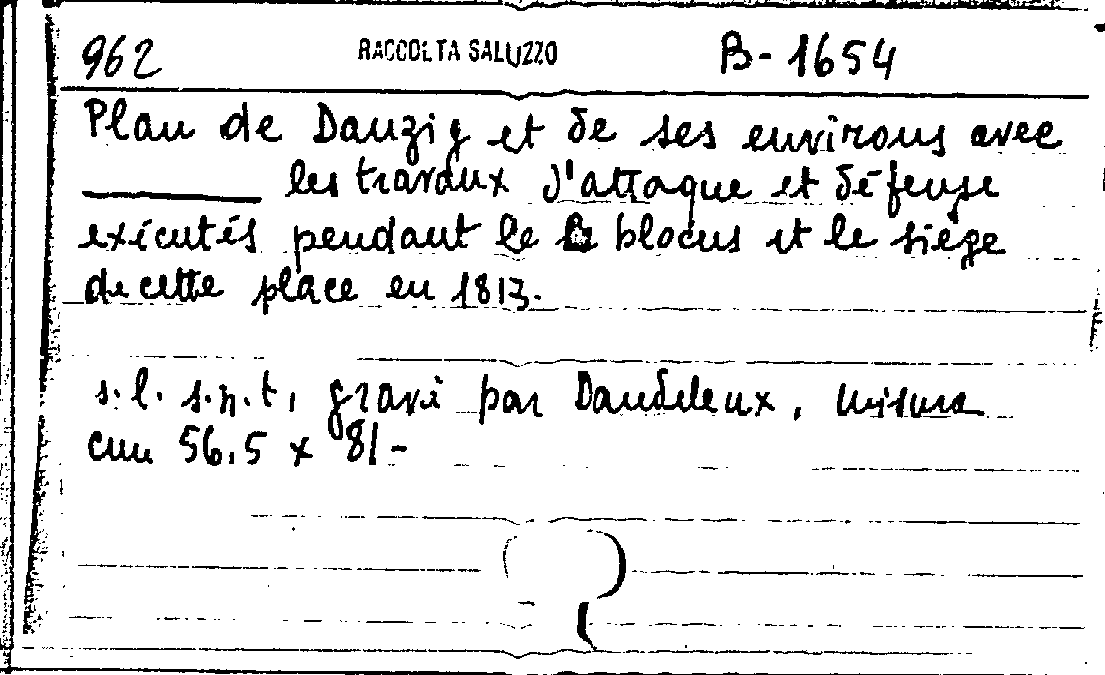 962 RACCOLTA SALUZZO B-1654
Plan de Danzig et de ses environs avec
les travaux d'attaque et défense
exécutés pendant le blocus et le siège
de cette place en 1813.
s.l. s.n.t., gravé par Dandeleux, misura
cm 56,5 x 81-